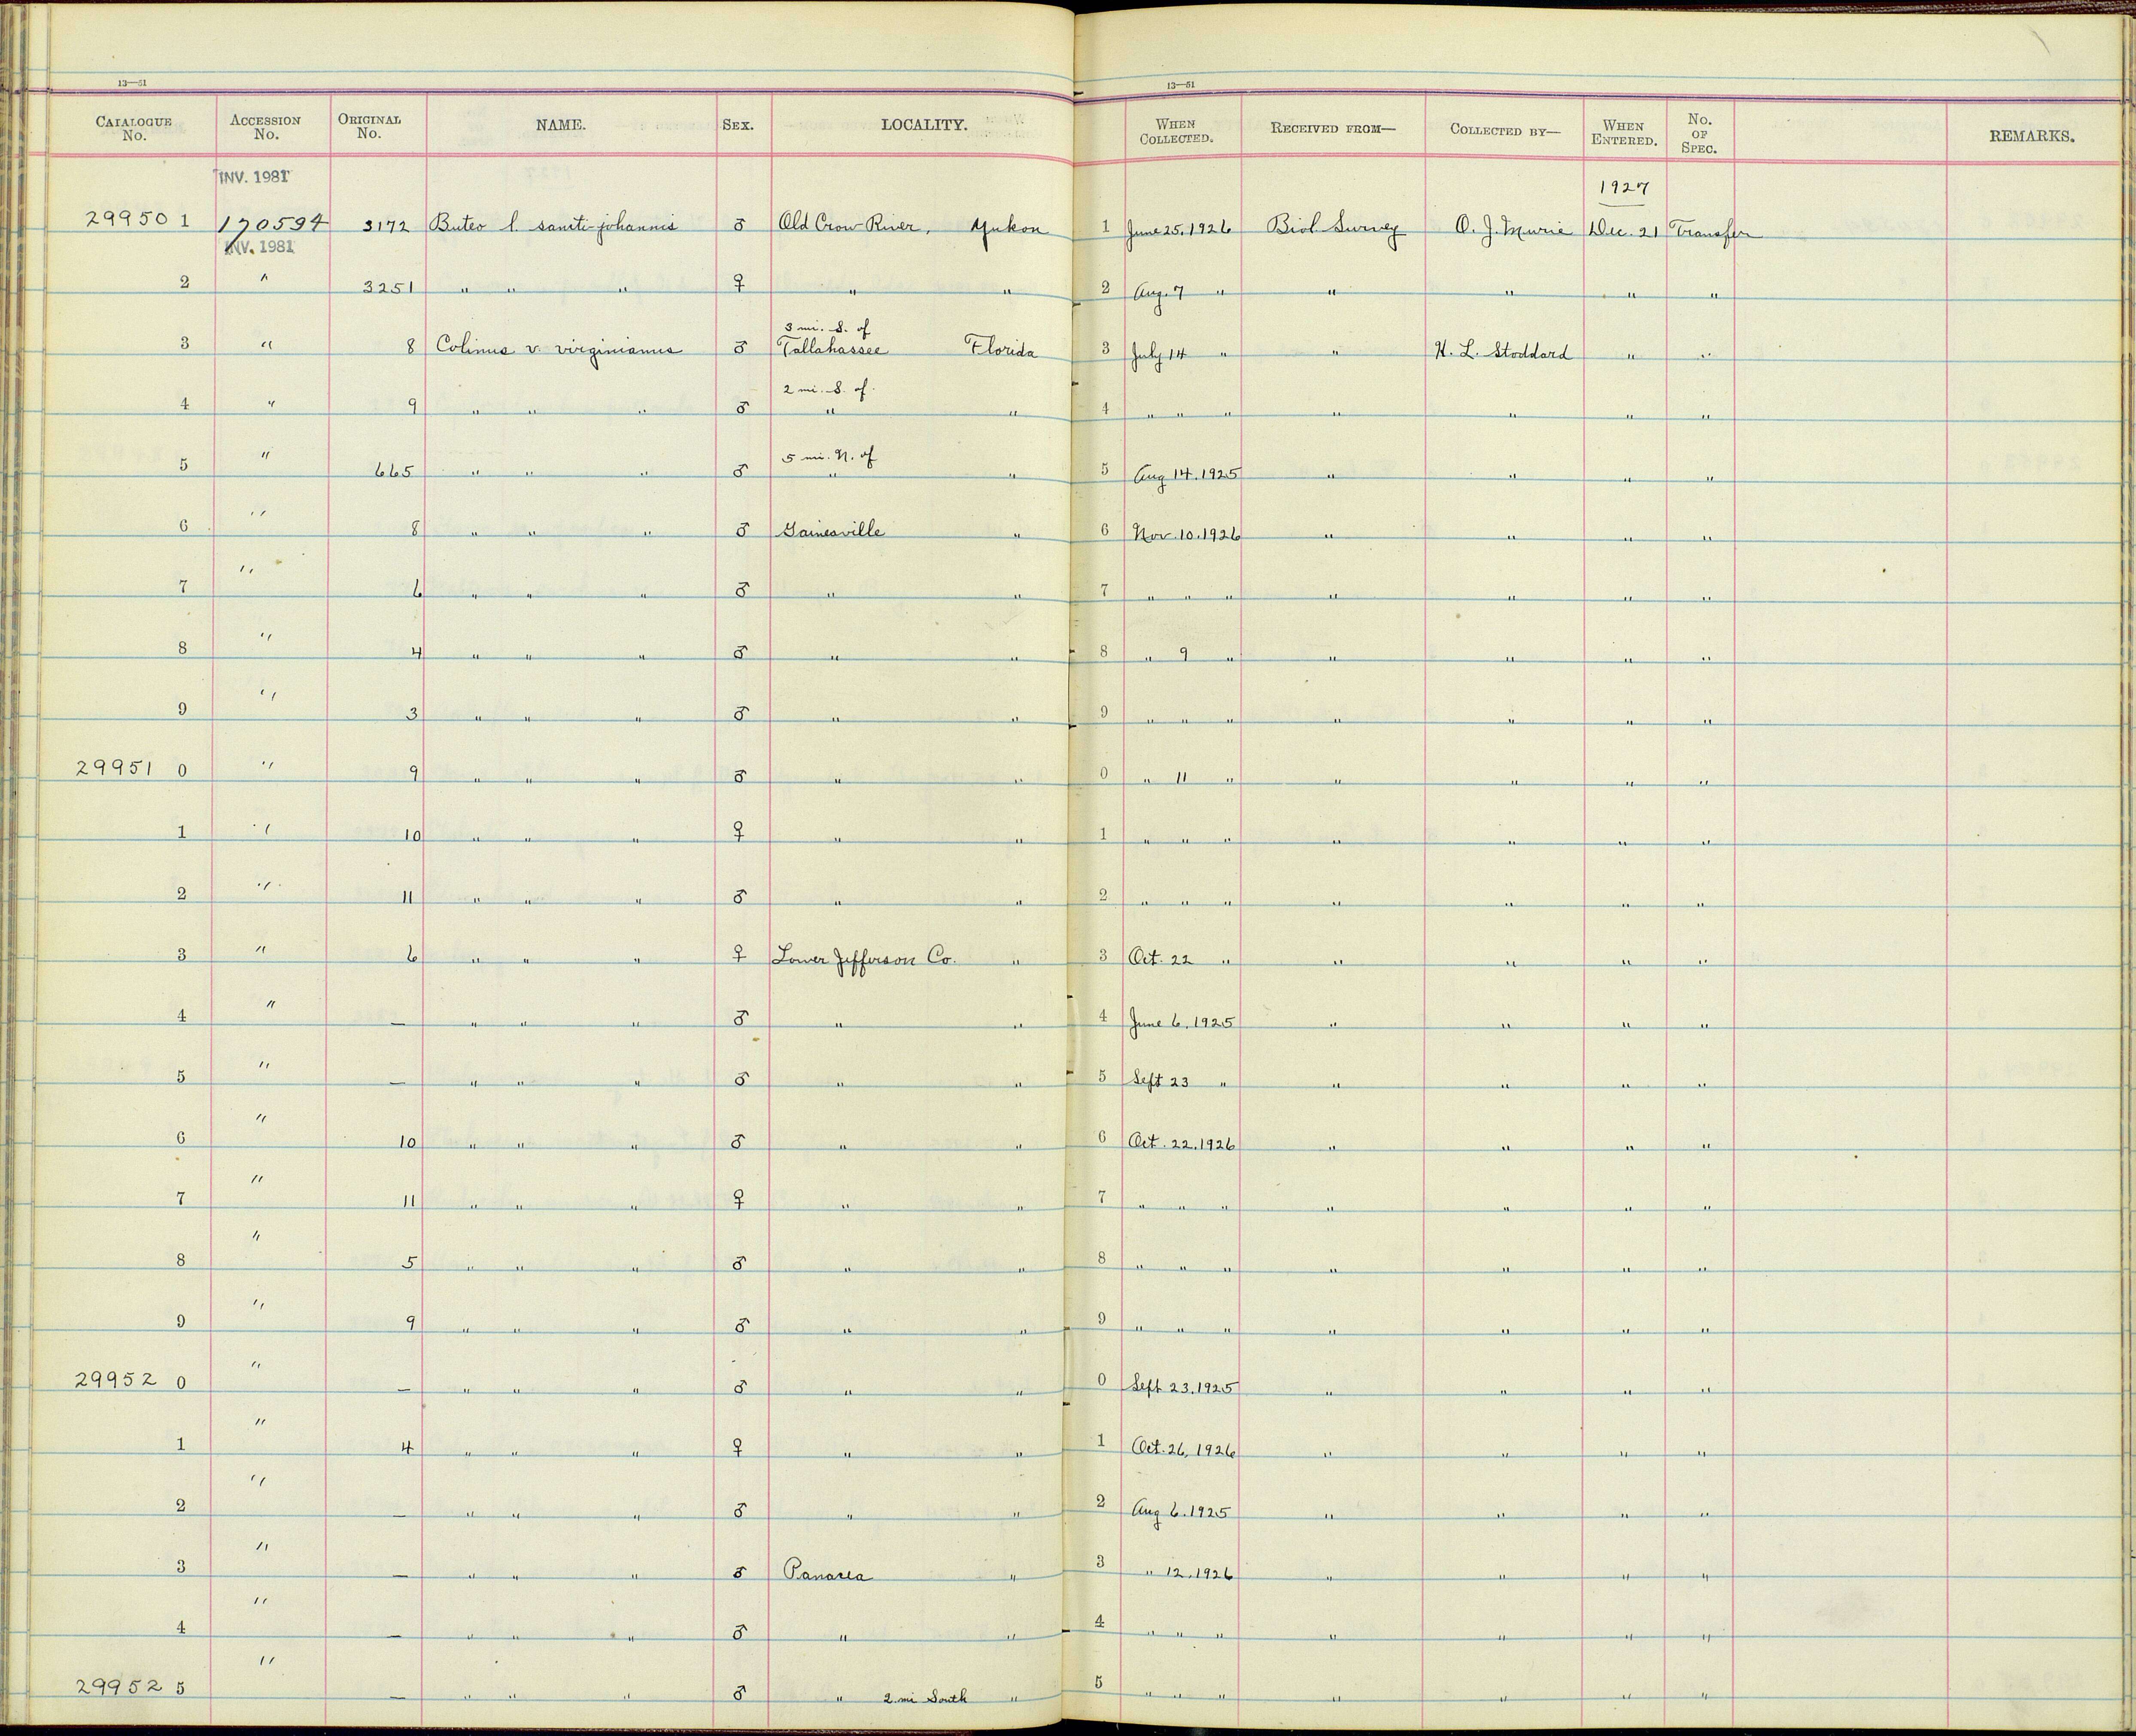 13—51 13—51
CATALOGUE No. ACCESSION No. ORIGINAL No. NAME. SEX. LOCALITY. WHEN COLLECTED. RECEIVED FROM— COLLECTED BY— WHEN ENTERED. No. OF SPEC. REMARKS.
INV. 1981
1927
29950 1 170594 3172 Buteo l. sancti-johannis ♂ Old Crow River, Yukon 1 June 25, 1926 Biol. Survey O. J. Murie Dec. 21 Transfer
INV. 1981
2 " 3251 " " " ♀ " " 2 Aug. 7 " " " " "
3 mi. S. of
3 " 8 Colinus v. virginianus ♂ Tallahassee Florida 3 July 14 " " H. L. Stoddard " "
2 mi. S. of
4 " 9 " " " ♂ " " 4 " " " " " " "
5 mi. N. of
5 " 665 " " " ♂ " " 5 Aug 14, 1925 " " " "
6 " 8 " " " ♂ Gainesville " 6 Nov. 10, 1926 " " " "
7 " 6 " " " ♂ " " 7 " " " " " " "
8 " 4 " " " ♂ " " 8 " 9 " " " " "
9 " 3 " " " ♂ " " 9 " " " " " " "
29951 0 " 9 " " " ♂ " " 0 " 11 " " " " "
1 " 10 " " " ♀ " " 1 " " " " " " "
2 " 11 " " " ♂ " " 2 " " " " " " "
3 " 6 " " " ♀ Lower Jefferson Co. " 3 Oct. 22 " " " " "
4 " — " " " ♂ " " 4 June 6, 1925 " " " "
5 " — " " " ♂ " " 5 Sept 23 " " " " "
6 " 10 " " " ♂ " " 6 Oct. 22, 1926 " " " "
7 " 11 " " " ♀ " " 7 " " " " " " "
8 " 5 " " " ♂ " " 8 " " " " " " "
9 " 9 " " " ♂ " " 9 " " " " " " "
29952 0 " — " " " ♂ " " 0 Sept 23, 1925 " " " "
1 " 4 " " " ♀ " " 1 Oct. 26, 1926 " " " "
2 " — " " " ♂ " " 2 Aug 6, 1925 " " " "
3 " — " " " ♂ Panacea " 3 " 12, 1926 " " " "
4 " — " " " ♂ " " 4 " " " " " " "
29952 5 " — " " " ♂ " 2 mi South " 5 " " " " " " "